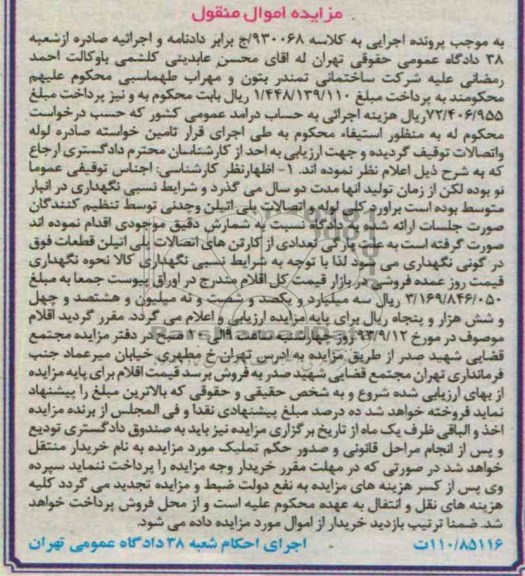 مزایده اموال منقول
به موجب پرونده اجرایی به کلاسه ۹۳۰۰۶۸/ج برابر دادنامه و اجرائیه صادره ازشعبه
۳۸ دادگاه عمومی حقوقی تهران له اقای محسن عابدینی کلشمی باوکالت احمد
رمضانی علیه شرکت ساختمانی تمندر بتون و مهراب طهماسبی محکوم علیهم
محکومند به پرداخت مبلغ ۱/۴۴۸/۱۳۹/۱۱۰ ریال بابت محکوم به و نیز پرداخت مبلغ
۷۲/۴۰۶/۹۵۵ریال هزینه اجرائی به حساب درامد عمومی کشور که حسب درخواست
محکوم له به منظور استیفاء محکوم به طی اجرای قرار تامین خواسته صادره لوله
واتصالات توقیف گردیده و جهت ارزیابی به احد از کارشناسان محترم دادگستری ارجاع
که به شرح ذیل اعلام نظر نموده اند. ۱- اظهارنظر کارشناسی: اجناس توقیفی عموما
نو بوده لکن از زمان تولید انها مدت دو سال می گذرد و شرایط نسبی نگهداری در انبار
متوسط بوده است براورد کلی لوله و اتصالات پلی اتیلن وجدنی توسط تنظیم کنندگان
صورت جلسات ارائه شده به دادگاه نسبت به شمارش دقیق موجودی اقدام نموده اند
صورت گرفته است به علت پارگی تعدادی از کارتن های اتصالات پلی اتیلن قطعات فوق
در گونی نگهداری می شود لذا با توجه به شرایط نسبی نگهداری کالا نحوه نگهداری
قیمت روز عمده فروشی در بازار قیمت کل اقلام مندرج در اوراق پیوست جمعا به مبلغ
۳/۱۶۹/۸۴۶/۰۵۰ ریال سه میلیارد و یکصد و شصت و نه میلیون و هشتصد و چهل
و شش هزار و پنجاه ریال برای پایه مزایده ارزیابی و اعلام می گردد. مقرر گردید اقلام
موصوف در مورخ ۹۳/۹/۱۲ روز چهارشنبه ساعت ۹الی ۱۰ صبح در دفتر مزایده مجتمع
قضایی شهید صدر از طریق مزایده به ادرس تهران خ مطهری خیابان میرعماد جنب
فرمانداری تهران مجتمع قضایی شهید صدر به فروش برسد قیمت اقلام برای پایه مزایده
از بهای ارزیابی شده شروع و به شخص حقیقی و حقوقی که بالاترین مبلغ را پیشنهاد
نماید فروخته خواهد شد ده درصد مبلغ پیشنهادی نقدا و فی المجلس از برنده مزایده
اخذ و الباقی ظرف یک ماه از تاریخ برگزاری مزایده نیز باید به صندوق دادگستری تودیع
و پس از انجام مراحل قانونی و صدور حکم تملیک مورد مزایده به نام خریدار منتقل
خواهد شد در صورتی که در مهلت مقرر خریدار وجه مزایده را پرداخت ننماید سپرده
وی پس از کسر هزینه های مزایده به نفع دولت ضبط و مزایده تجدید می گردد کلیه
هزینه های نقل و انتقال به عهده محکوم علیه است و از محل فروش پرداخت خواهد
شد. ضمنا ترتیب بازدید خریدار از اموال مورد مزایده داده می شود.
۱۱۰/۸۵۱۱۶ت اجرای احکام شعبه ۳۸ دادگاه عمومی تهران